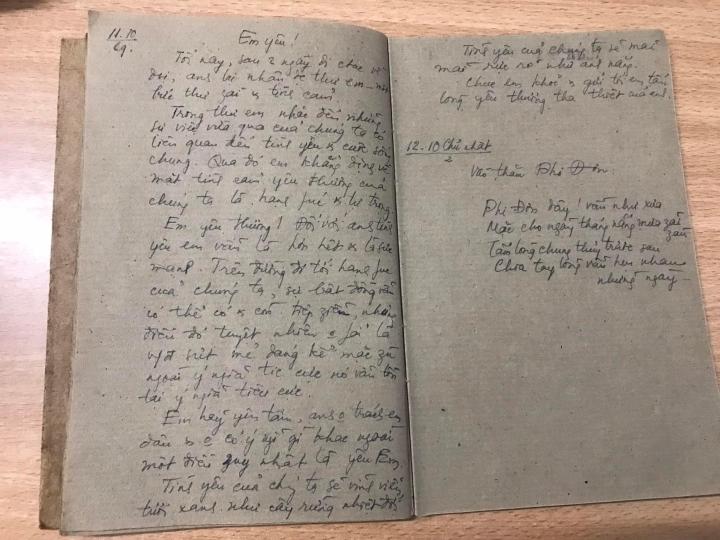 11.10
29.
Em yêu!
Tối nay, sau 2 ngày đi công về
đội, ans lại nhận đc thư em
bức thư dài & tình cảm
Trong thư em nhắc đến những
sự việc vừa qua của chúng ta có
liên quan đến tình yêu & cuộc sống
chung. Qua đó em khẳng định về
mặt tình cảm yêu thương của
chúng ta là hạnh fúc &
Em yêu thương! Đối với ans tình
yêu em vẫn là hơn hết &
Trên đường đi tới hạnh fúc
của chúng ta, sự bất đồng vẫn
có thể có & còn tiếp diễn, những
điều đó tuyệt nhiên o fải là
mẻ đáng kể mặc zù
ngoài ý nghĩa tíc cực nó vẫn tồn
tại ý nghĩa tiêu cực.
Em hãy yên tâm, ans o trách em
đâu & o có ý nghĩ gì khác ngoài
một điều quy nhất là yêu Em.
Tình yêu của chúng ta sẽ vĩnh viễn
tươi xanh như cây rừng nhiệt đới
Tình yêu của chúng ta sẽ mãi
mãi rực rỡ như ans nắng.
Chúc em khoẻ & gửi tới em tấm
lòng yêu thương tha thiết của em.
12.10 Chủ nhật
2
Vào thăm Phi Đôn
Phi Đôn đây! vẫn như xưa
Mặc cho ngày tháng nắng mưa zãi zầu
Tấm lòng chung thuỷ trước sau
Chia tay lòng vẫn hẹn nhau
những ngày –